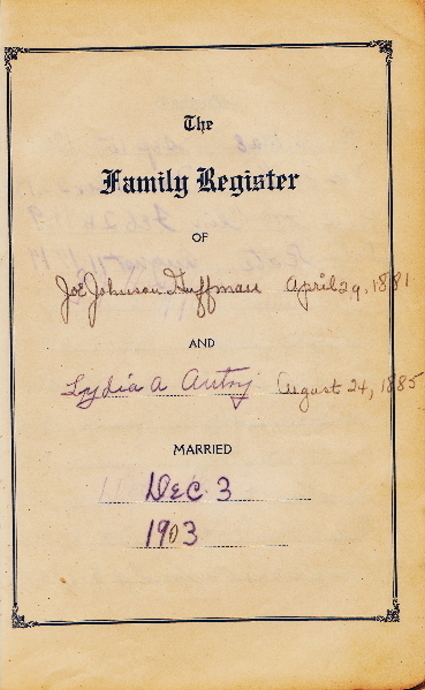 The
Family Register
OF
Joe Johnson Huffman April 29, 1881
AND
Lydia A Autry August 24, 1885
MARRIED
Dec 3
1903